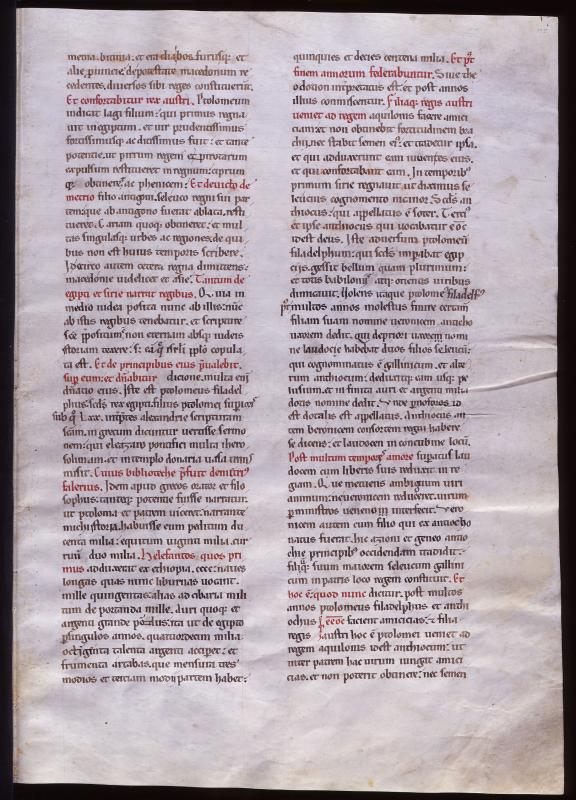 media. bitinia. et
alie
cedentes, diversos sibi reges constituerunt.
Et confortabitur rex austri. Ptolomeum
indicat lagi filium: qui primus regna
vit in egiptum. et vir prudentissimus
fortissimusq; ac ditissimus fuit: et tante
potentie, ut pirrum regem epirotarum
expulsum restitueret in regnum: ciprum
q; obtineret, ac phenicem: Et devicto de
metrio filio antigoni. seleuco regni sui par
tem: que ab antigono fuerat ablata, resti
tueret. cariam quoq; obtineret: et mul
tas insulasq; urbes ac regiones: de qui
bus non est huius temporis scribere.
Idcirco autem cetera regna dimittens:
macedonie videlicet et asie. Tantum de
egipti et sirie narrat regibus. Quia in
medio iudea posita nunc ab illis: nunc
ab istis regibus tenebatur. et scripture
storiam texere: s;
ta est. Et de principibus eius
sup eum: et dominabitur dicione. multa enim
dnatio eius. Iste est ptolomeus filadel
phus. secundus rex egipti. filius ptolomei superioris
sub quo lxx. interpretes alexandrie scripturam
scam. in grecum dicuntur vertisse sermo
nem: qui eleazaro pontifici multa ihero
solimam. et in templo donaria vasa trans
misit. Cuius bibliothece prefuit demetrius
falerius. Idem apud grecos orator et filo
sophus: tanteq; potentie fuisse narratur.
ut ptolomeum patrem vinceret: narrant
michi storia. habuisse eum peditum du
centa milia: equitum viginti milia. cur
rum duo milia. helefantos; quos pri
mus adduxerat ex ethiopia. cccc: naves
longas quas nunc liburnas vocant.
mille quingentas: alias ad cibaria mili
tum deportanda mille. Auri quoq; et
argenti grande pondus: ita ut de egipto
p singulos annos. quatuordecim milia
octiginta talenta argenti acciperet: et
frumenti artabas, que mensura tres
modios et terciam modii partem habet:
quinquies et decies centena milia. Et post
finem annorum federabuntur. Sive theo
odotion interpretatus est: et post annos
illius commiscentur. Filiaq; regis austri
veniet ad regem aquilonis facere amici
ciam: et non obtinebit fortitudinem bra
chii, nec stabit semen eius: et tradetur ipsa.
et qui adduxerunt eam iuvenes eius.
et qui confortabant eam. In temporibus
primum sirie regnavit, ut diximus se
leucus cognomento nicanor. Secundus an
thiocus: qui appellatus est soter. Tercius
et ipse anthiocus qui vocabatur eos
idest deus. Iste adversum ptolomeum
filadelphum: qui secundus imperabat egip
ciis: gessit bellum quam plurimum:
et totis babilonis atq; orientis viribus
dimicavit. Volens itaque ptolomeus filadelfus
post multos annos molestum finire certamen:
filiam suam nomine veronicem. antiocho
uxorem dedit. qui de priori uxorem nomi
ne laudocie habebat duos filios seleucum:
qui cognominatus est gallinicum. et alte
rum anthiocum: deduxitq; eam usq; pe
lusium. et infinita auri et argenti milia
dotis nomine dedit.
est dotalis est appellatus. Anthiocus au
tem beronicem consortem regni habere
se dicens: et laudocem in concubine locum.
Post multum tempore amore superatus lau
docem cum liberis suis reduxit in re
giam. Que metuens ambiguum viri
animum: ne veronicem reduceret. virum
p ministros veneno interfecit. Vero
nicem autem cum filio qui ex antiocho
natus fuerat. hic azioni et geneo antio
chie principibus occidendam tradidit:
filiumq; suum maiorem seleucum gallini
cum in patris loco regem constituit. Et
hoc est quod nunc dicitur. post multos
annos ptolomeus filadelphus et anthi
ochus facient amicicias: et filia
regis austri hoc est ptolomei veniet ad
regem aquilonis idest anthiocum: ut
inter patrem hac virum iungat amici
cias. et non poterit obtinere: nec semen